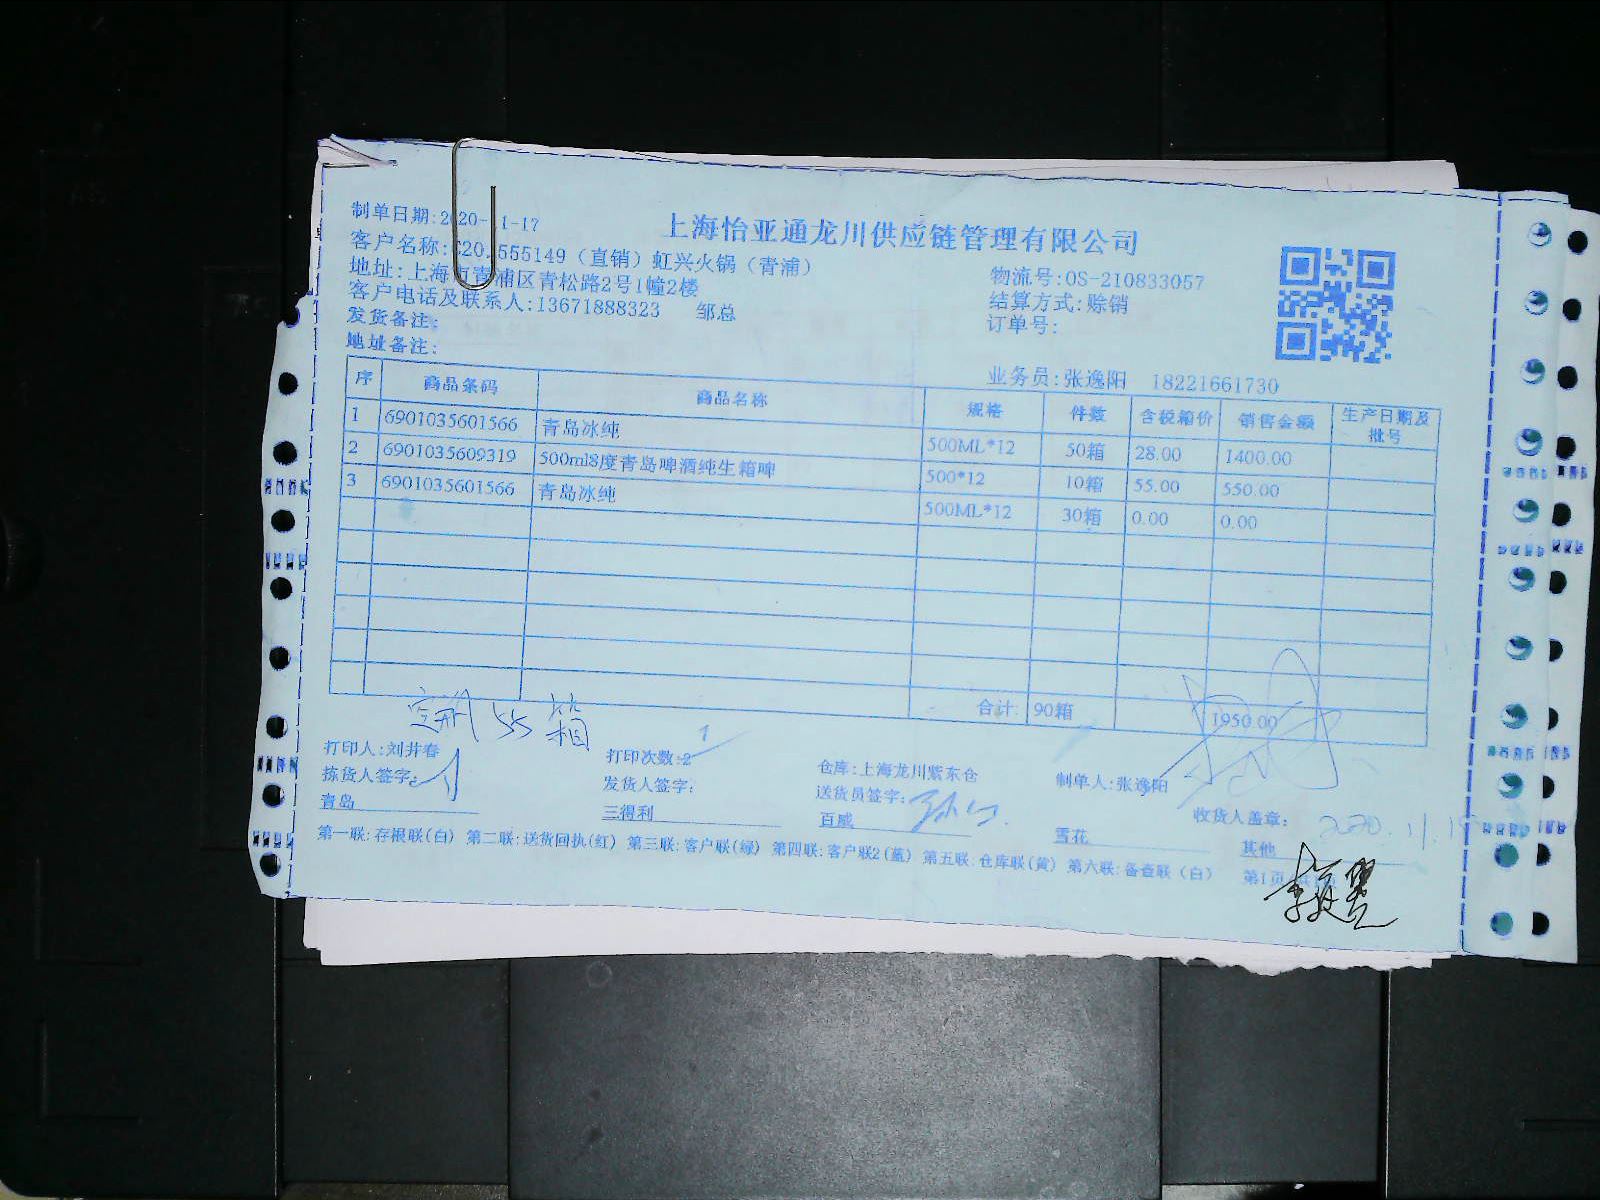 上海怡亚通龙川供应链管理有限公司
制单日期:2020-11-17
客户名称: 555149（直销）虹兴火锅（青浦）
地址:上海市青浦区青松路2号1幢2楼
物流号:OS-210833057
客户电话及联系人:13671888323 邹总
结算方式:赊销
发货备注:
订单号:
地址备注:
业务员:张逸阳 18221661730
序 商品条码 商品名称 规格 件数 含税箱价 销售金额 生产日期及批号
1 6901035601566 青岛冰纯 500ML*12 50箱 28.00 1400.00
2 6901035609319 500ml8度青岛啤酒纯生箱啤 500*12 10箱 55.00 550.00
3 6901035601566 青岛冰纯 500ML*12 30箱 0.00 0.00
合计: 90箱 1950.00
55箱
打印人:刘井春 打印次数:2 仓库:上海龙川紫东仓 制单人:张逸阳
拣货人签字: 发货人签字: 送货员签字: 收货人盖章:
青岛 三得利 百威 雪花 其他
第一联:存根联(白) 第二联:送货回执(红) 第三联:客户联(绿) 第四联:客户联2(蓝) 第五联:仓库联(黄) 第六联:备查联（白） 第1页